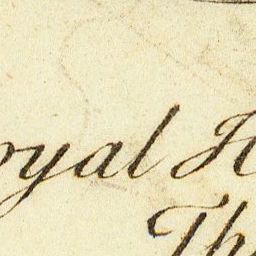 oyal H
Th